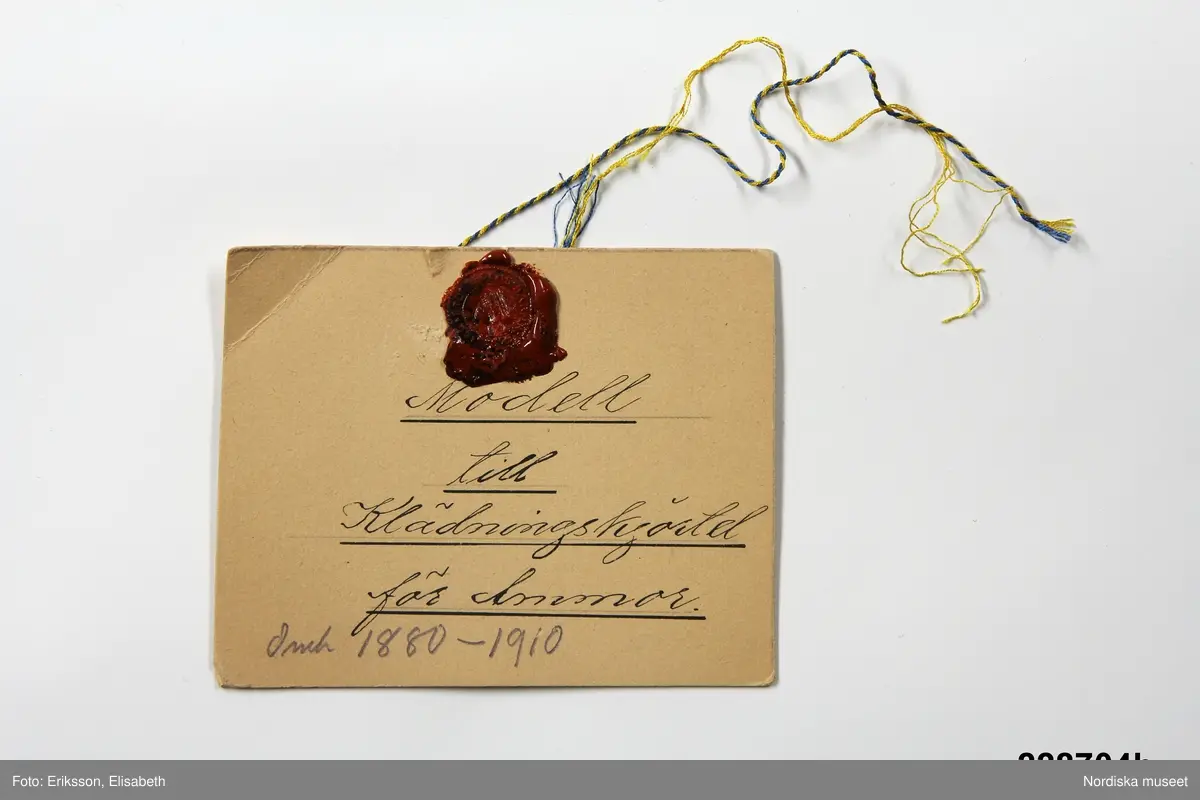 Modell
till
Klädningskjortel
för Ammor.
1880–1910
Foto: Eriksson, Elisabeth
Nordiska museet